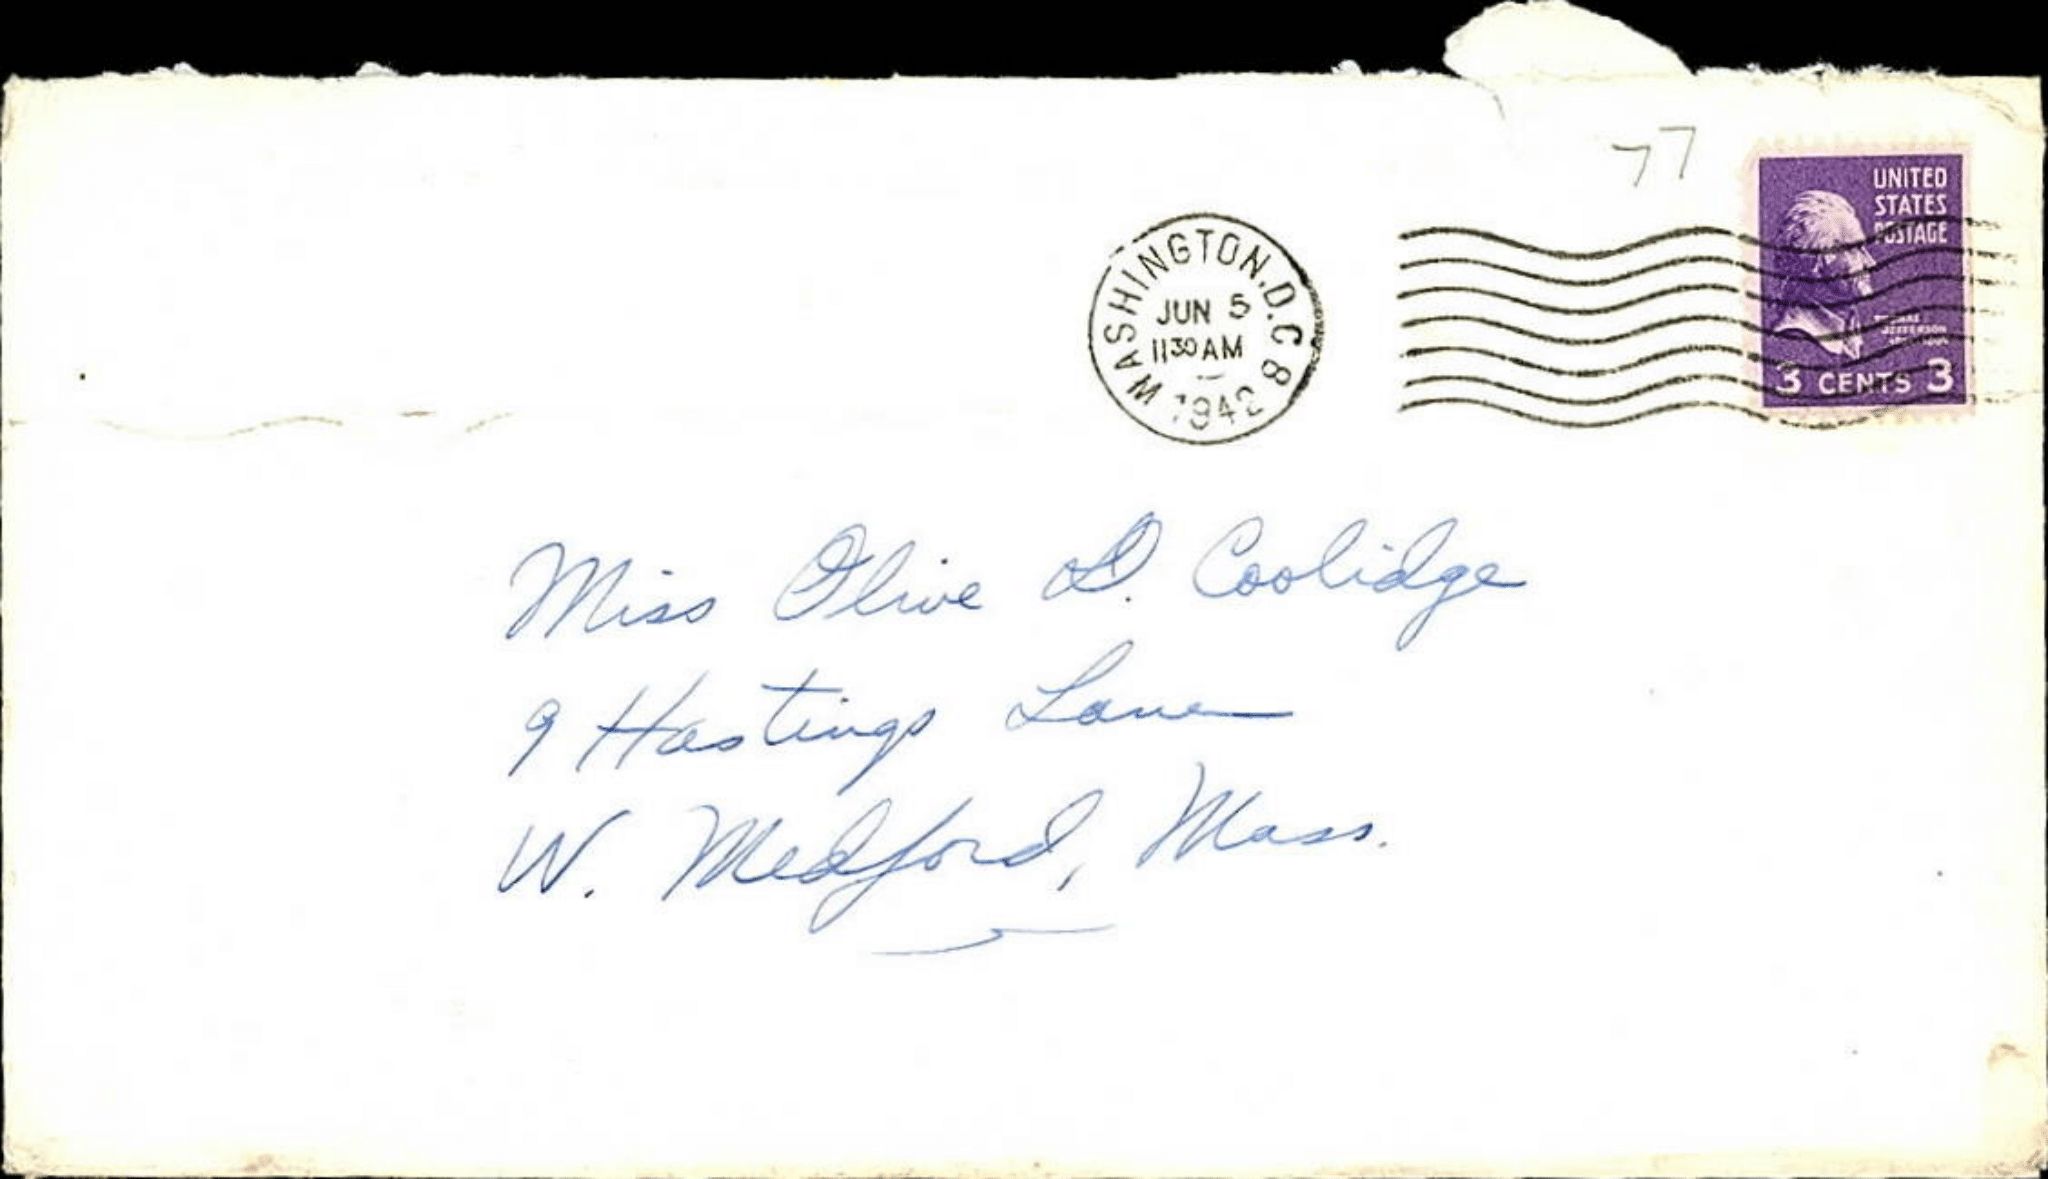 77
UNITED
STATES
POSTAGE
THOMAS
JEFFERSON
3 CENTS 3
WASHINGTON, D.C. 8
JUN 5
1130 AM
1942
Miss Olive D. Coolidge
9 Hastings Lane
W. Medford, Mass.